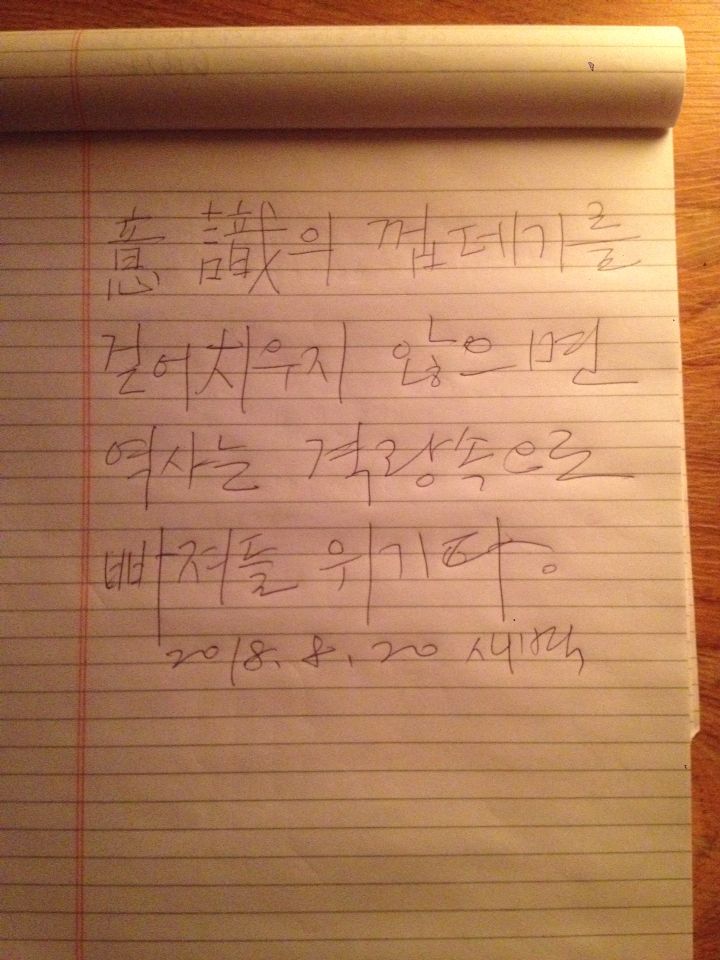 意識의 껍데기를
걸어치우지 않으면
역사는 격랑속으로
빠져들 위기다.
2018. 8. 20 새벽